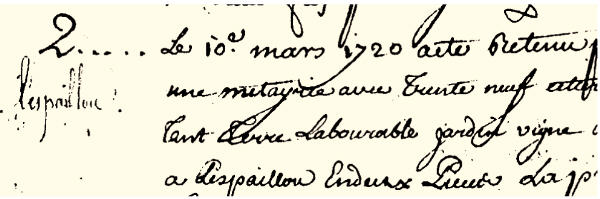 2..... Le 10.e mars 1720 acte Retenu
Lespaillou. une metayrie avec Trente neuf
Tant Terre Labourable jardin vigne
a Lespaillou En deux Pieces La p